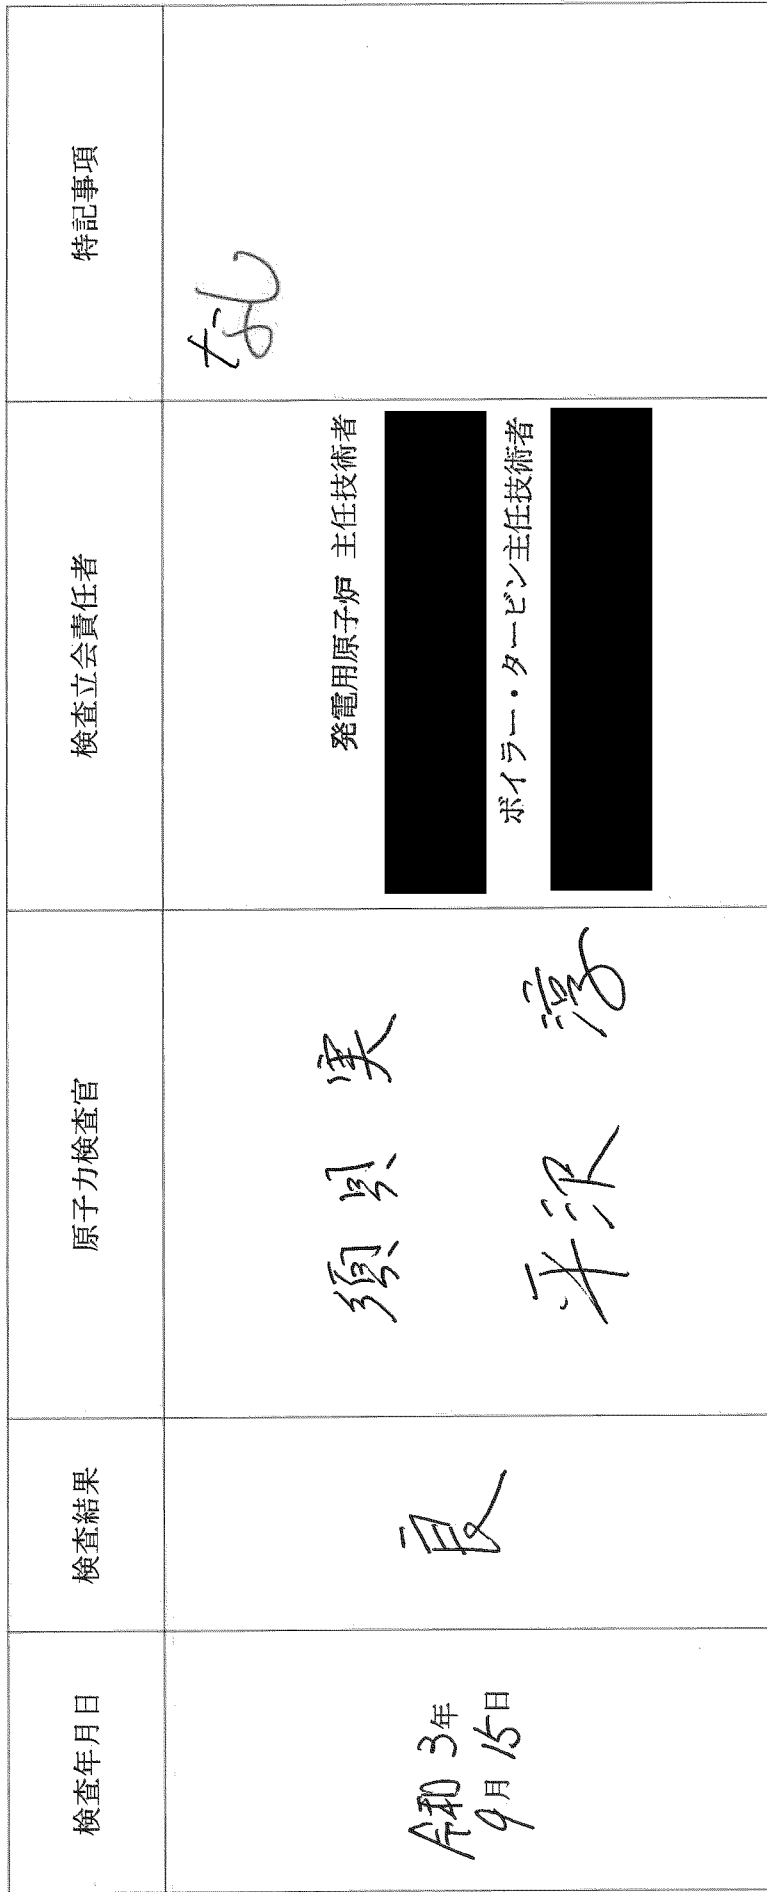 検査年月日
検査結果
原子力検査官
検査立会責任者
特記事項
令和3年
9月15日
良
須貝 実
平沢 淳
発電用原子炉 主任技術者
ボイラー・タービン主任技術者
なし